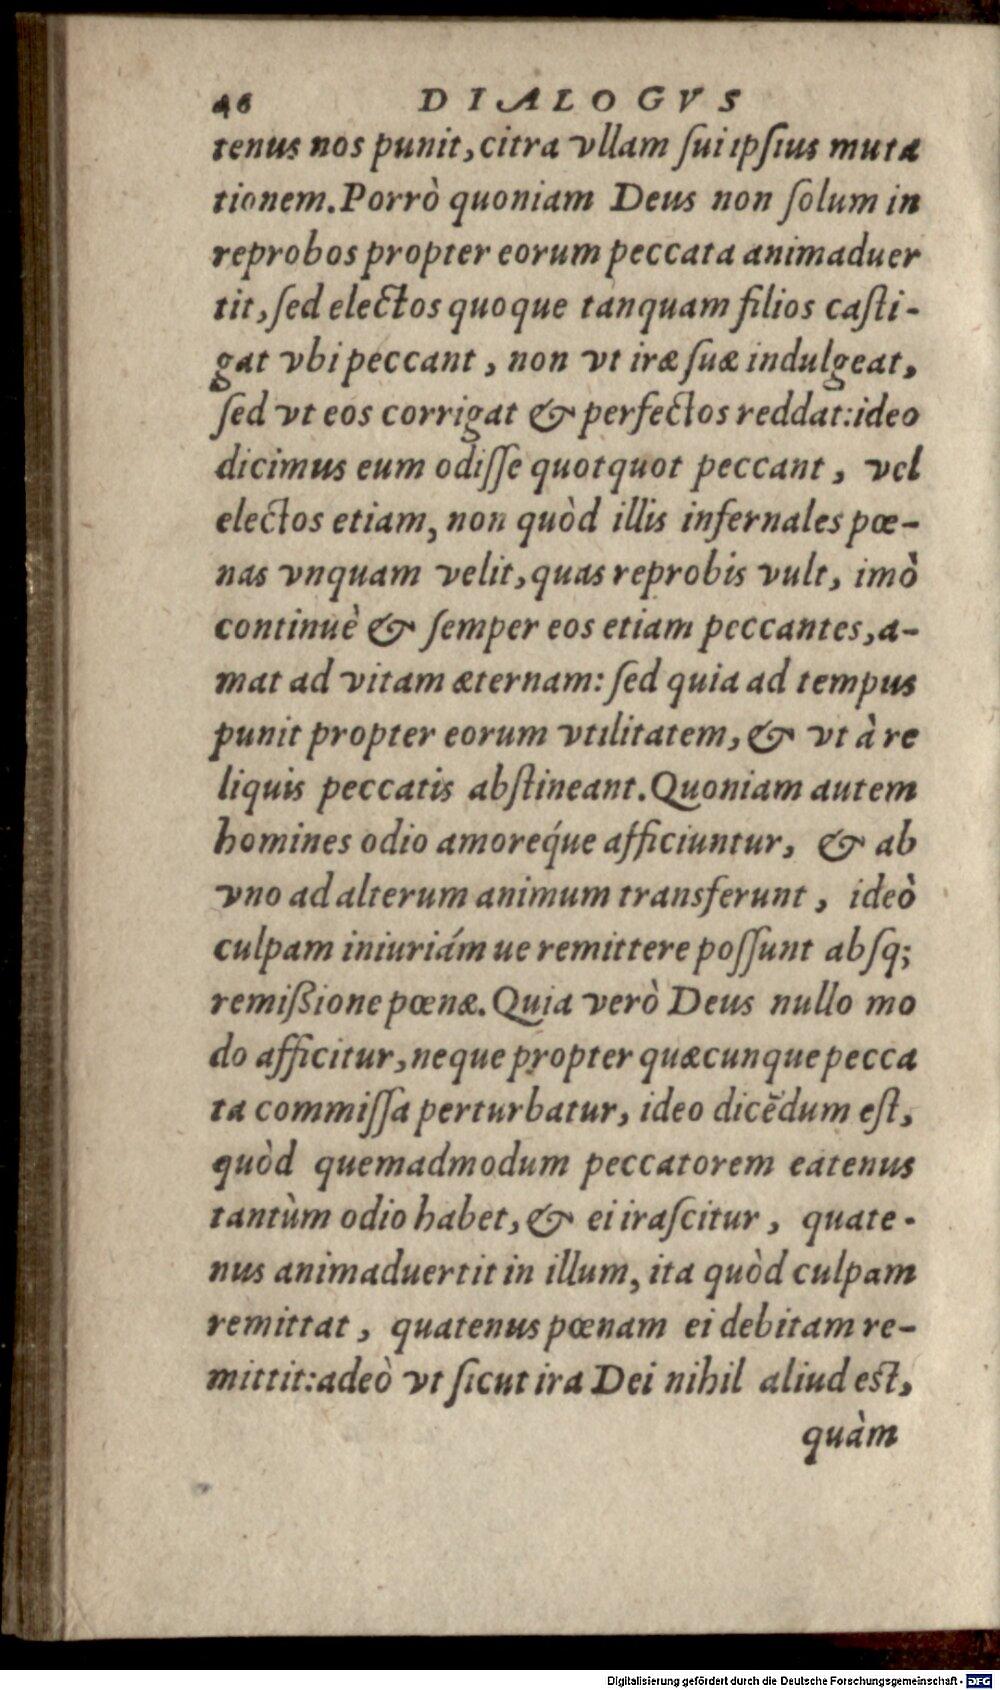 46 DIALOGVS
tenus nos punit, citra vllam ſui ipſius muta
tionem. Porrò quoniam Deus non ſolum in
reprobos propter eorum peccata animaduer
tit, ſed electos quoque tanquam filios caſti-
gat vbi peccant, non vt iræ ſuæ indulgeat,
ſed vt eos corrigat & perfectos reddat: ideo
dicimus eum odiſſe quotquot peccant, vel
electos etiam, non quòd illis infernales pœ-
nas vnquam velit, quas reprobis vult, imò
continuè & ſemper eos etiam peccantes, a-
mat ad vitam æternam: ſed quia ad tempus
punit propter eorum vtilitatem, & vt à re
liquis peccatis abſtineant. Quoniam autem
homines odio amoreq́ue afficiuntur, & ab
vno ad alterum animum transferunt, ideò
culpam iniuriámue remittere poſſunt abſq;
remißione pœnæ. Quia verò Deus nullo mo
do afficitur, neque propter quæcunque pecca
ta commiſſa perturbatur, ideo dicẽdum eſt,
quòd quemadmodum peccatorem eatenus
tantùm odio habet, & ei iraſcitur, quate-
nus animaduertit in illum, ita quòd culpam
remittat, quatenus pœnam ei debitam re-
mittit: adeò vt ſicut ira Dei nihil aliud eſt,
quàm
Digitalisierung gefördert durch die Deutsche Forschungsgemeinschaft - DFG